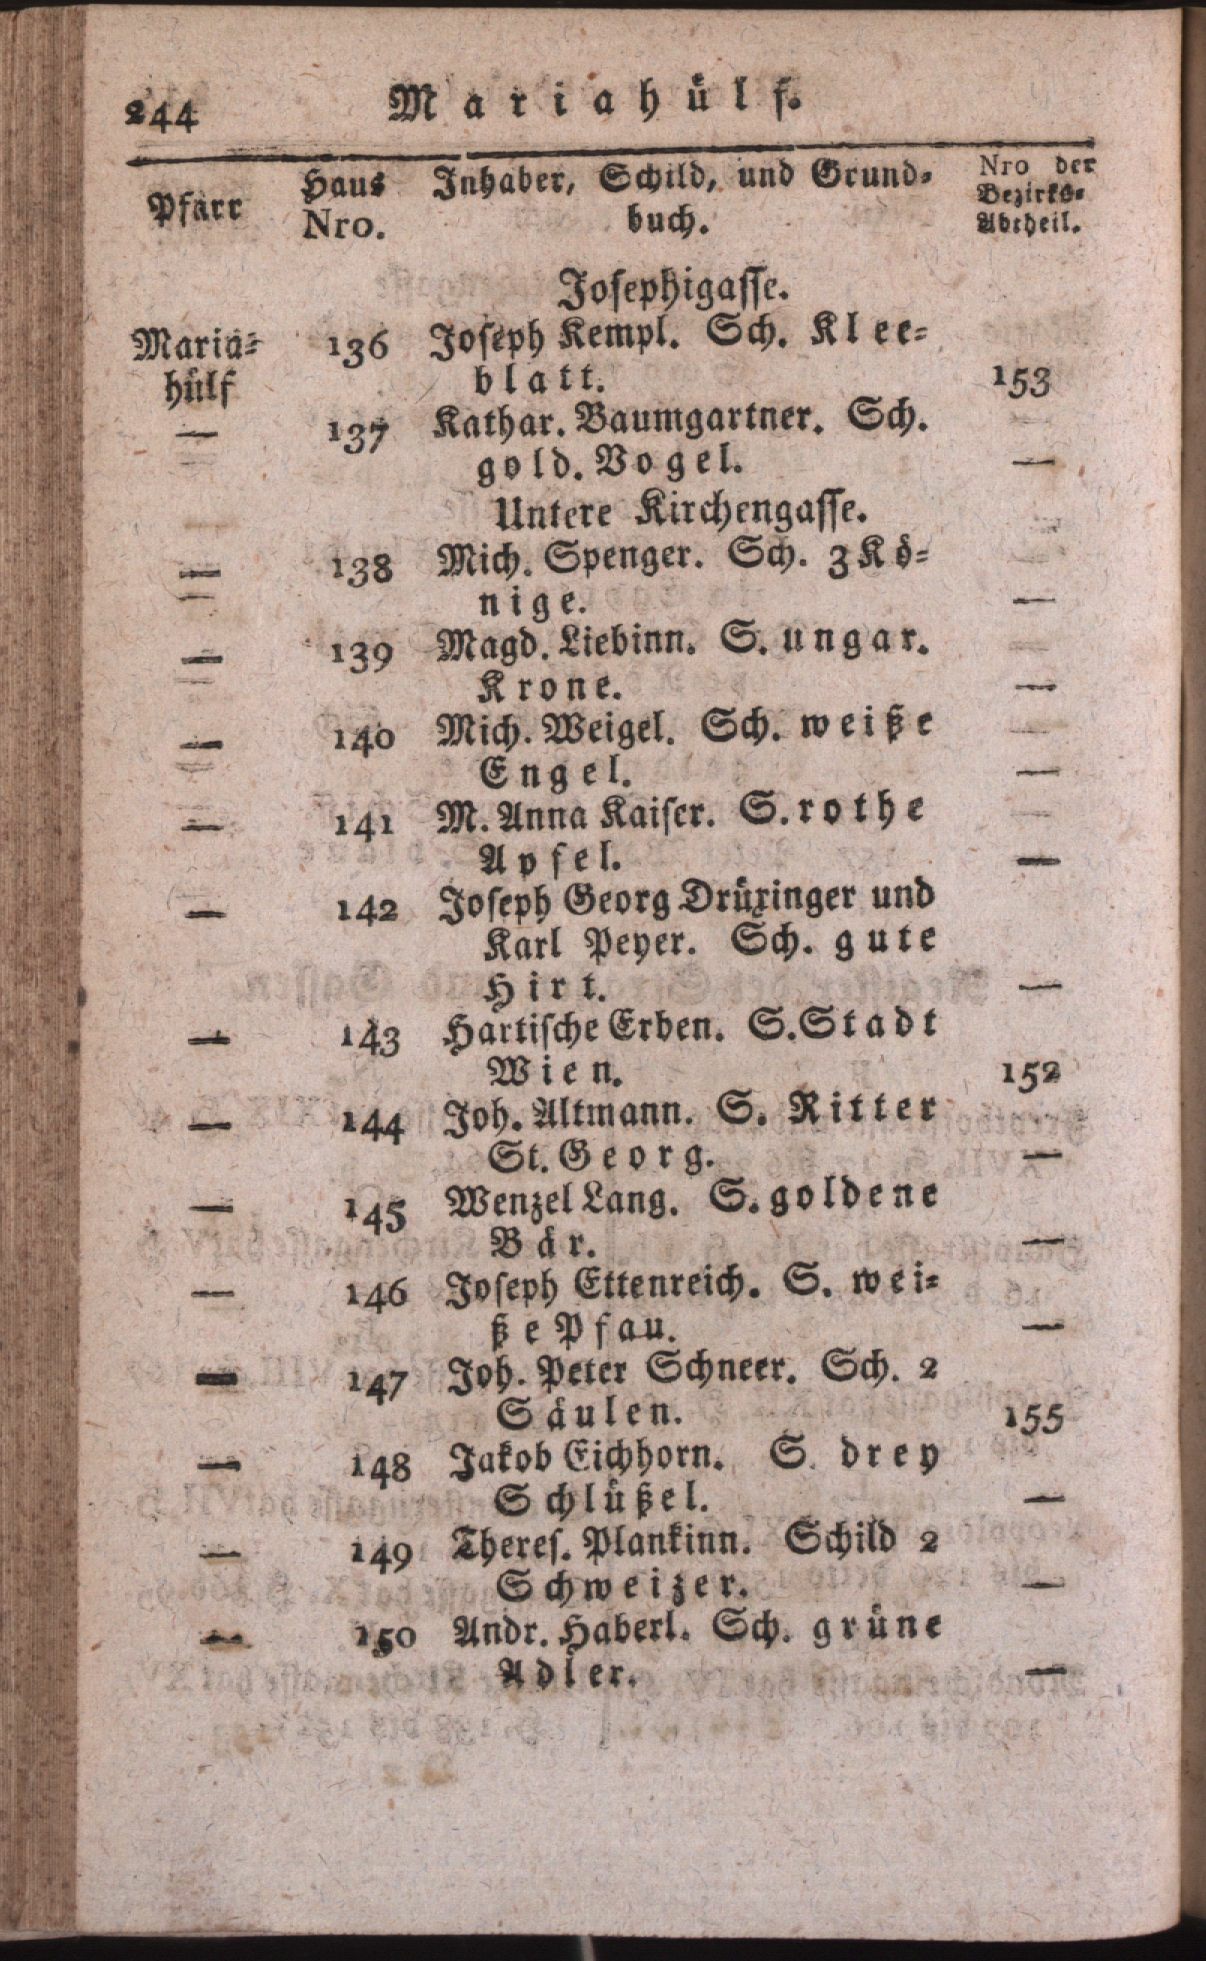 244 Mariahülf.
Pfarr Haus Nro. Inhaber, Schild, und Grund-
buch. Nro der Bezirks-Abtheil.
Josephigasse.
Maria- 136 Joseph Kempl. Sch. Klee-
hülf blatt. 153
— 137 Kathar. Baumgartner. Sch.
gold. Vogel. —
Untere Kirchengasse.
— 138 Mich. Spenger. Sch. 3 Kö-
nige. —
— 139 Magd. Liebinn. S. ungar.
Krone. —
— 140 Mich. Weigel. Sch. weiße
Engel. —
— 141 M. Anna Kaiser. S. rothe
Apfel. —
— 142 Joseph Georg Drüxinger und
Karl Peyer. Sch. gute
Hirt. —
— 143 Hartische Erben. S. Stadt
Wien. 152
— 144 Joh. Altmann. S. Ritter
St. Georg. —
— 145 Wenzel Lang. S. goldene
Bär. —
— 146 Joseph Ettenreich. S. wei-
ße Pfau. —
— 147 Joh. Peter Schneer. Sch. 2
Säulen. 155
— 148 Jakob Eichhorn. S. drey
Schlüßel. —
— 149 Theres. Plankinn. Schild 2
Schweizer. —
— 150 Andr. Haberl. Sch. grüne
Adler. —